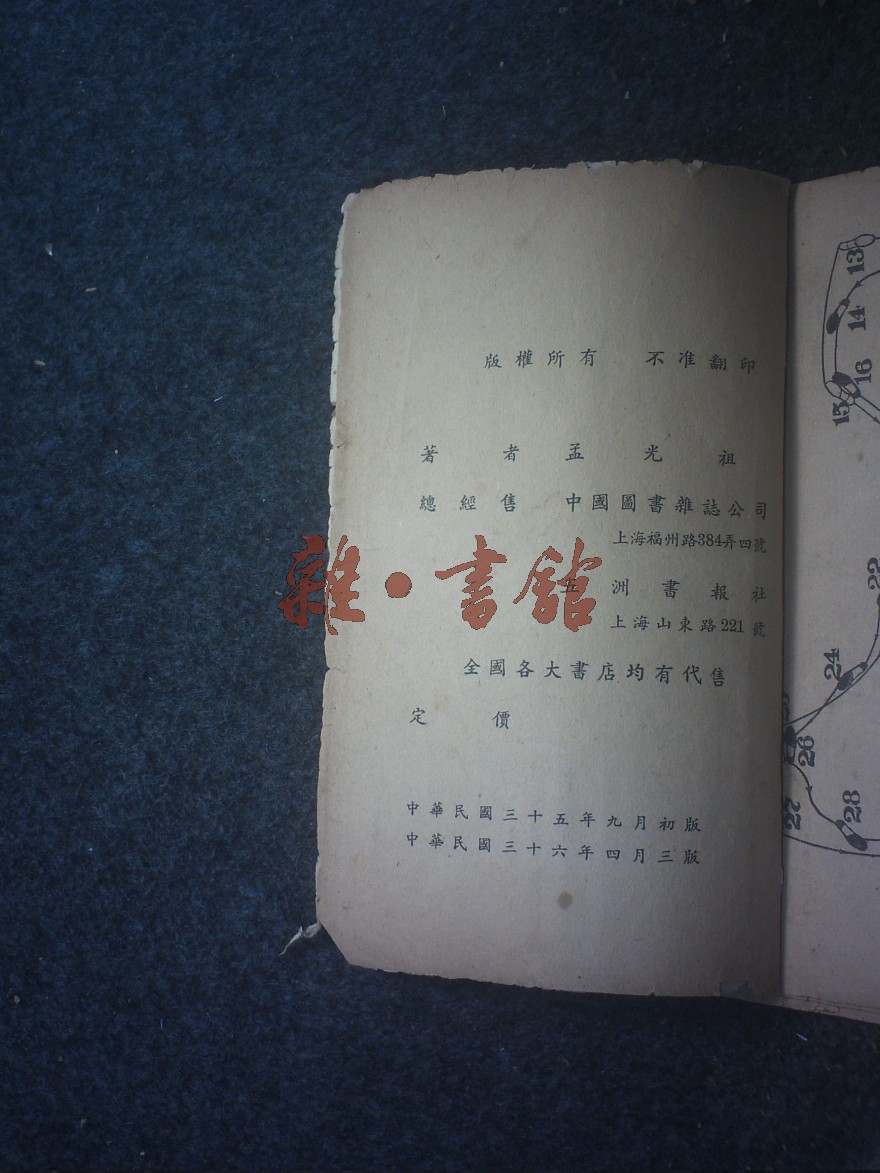 版權所有 不准翻印
著者 孟光祖
總經售 中國圖書雜誌公司
上海福州路384弄四號
五洲書報社
上海山東路221號
全國各大書店均有代售
定價
中華民國三十五年九月初版
中華民國三十六年四月三版
雜·書館
13
14
16
15
22
24
26
27
28